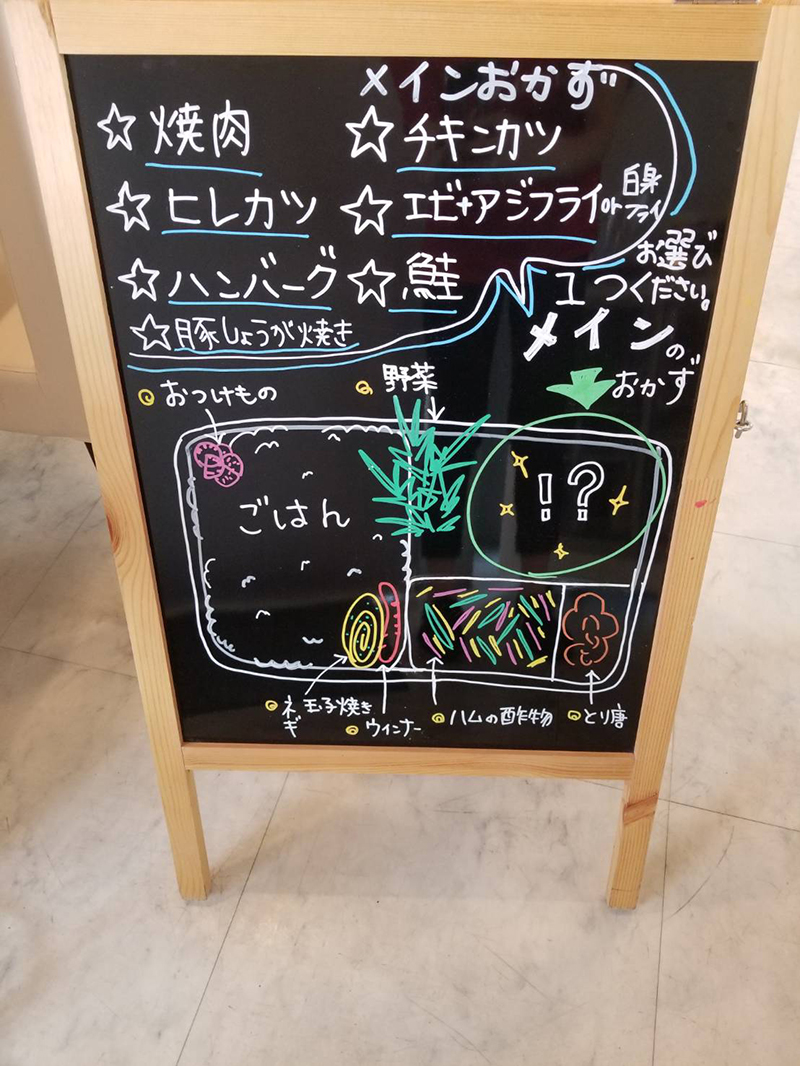 メインおかず
☆焼肉 ☆チキンカツ
☆ヒレカツ ☆エビ+アジフライor白身フライ
☆ハンバーグ ☆鮭
☆豚しょうが焼き
1つお選びください。
メインのおかず
おつけもの
野菜
ごはん
!?
ネギ玉子焼き
ウィンナー
ハムの酢物
とり唐